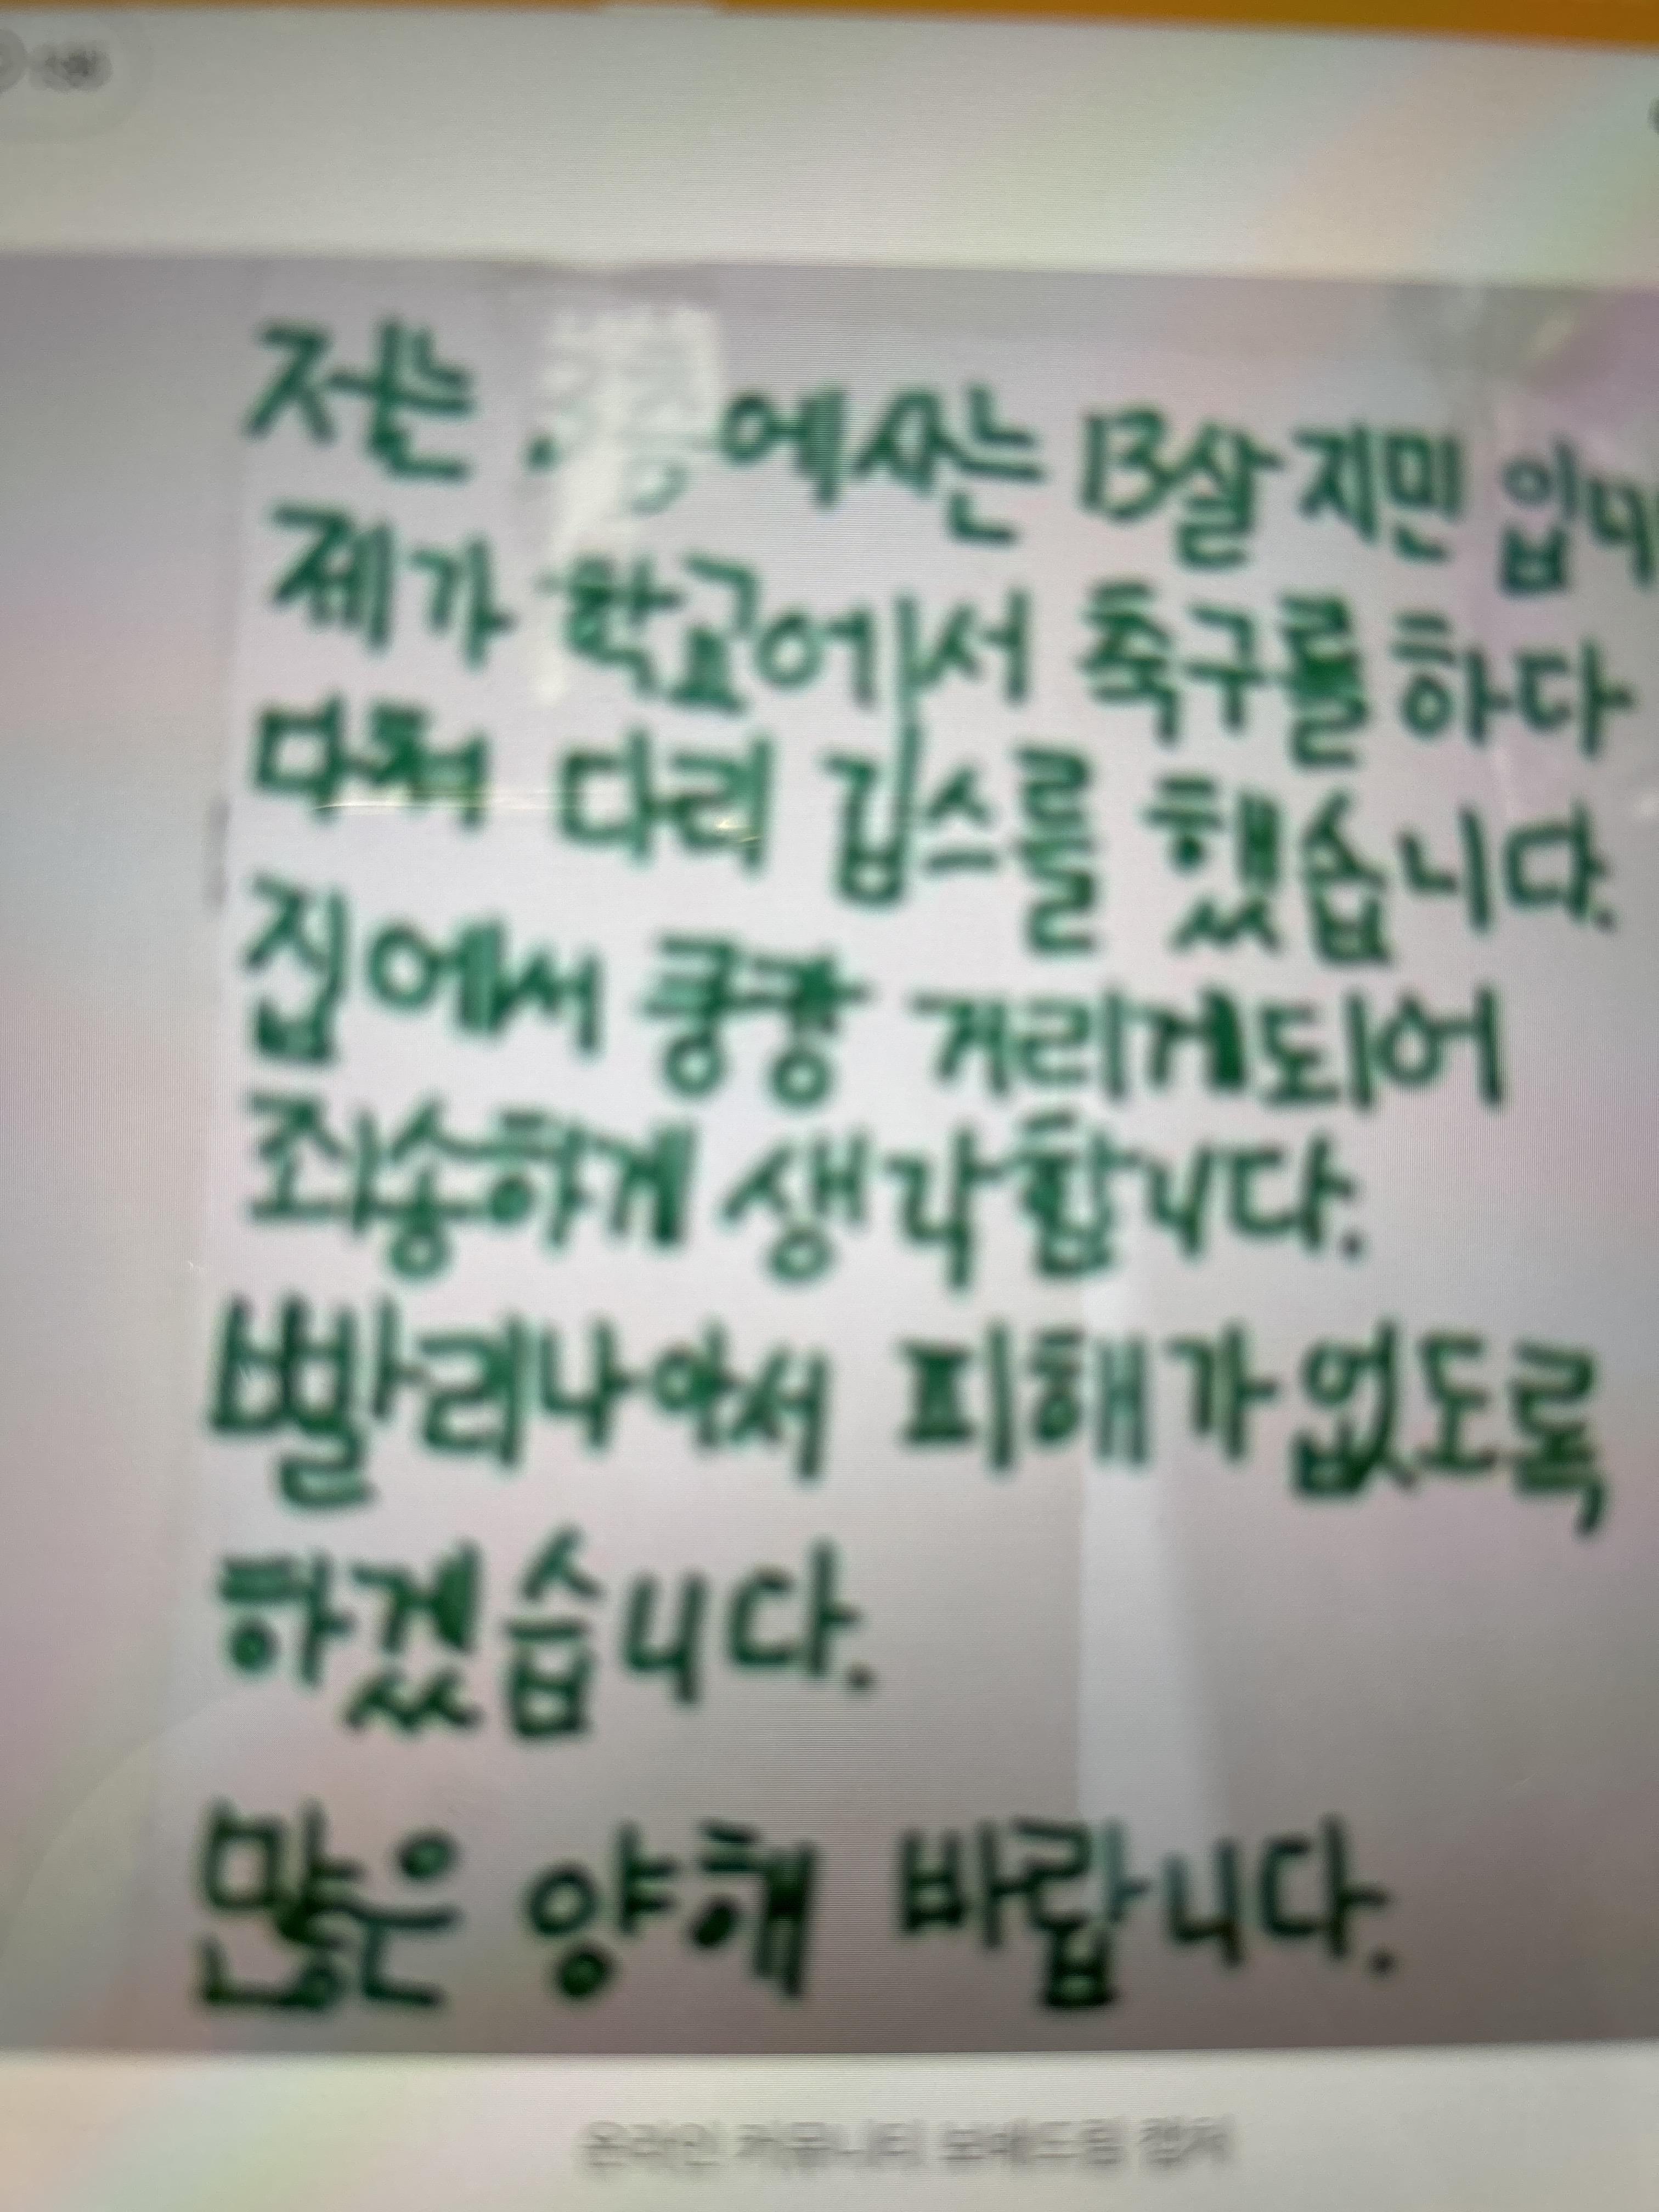 저는 에 사는 13살 지민 입니
제가 학교에서 축구를 하다
다쳐 다리 깁스를 했습니다.
집에서 쿵쾅 거리게되어
죄송하게 생각합니다.
빨리나아서 피해가없도록
하겠습니다.
많은 양해 바랍니다.
온라인 커뮤니티 보배드림 캡처